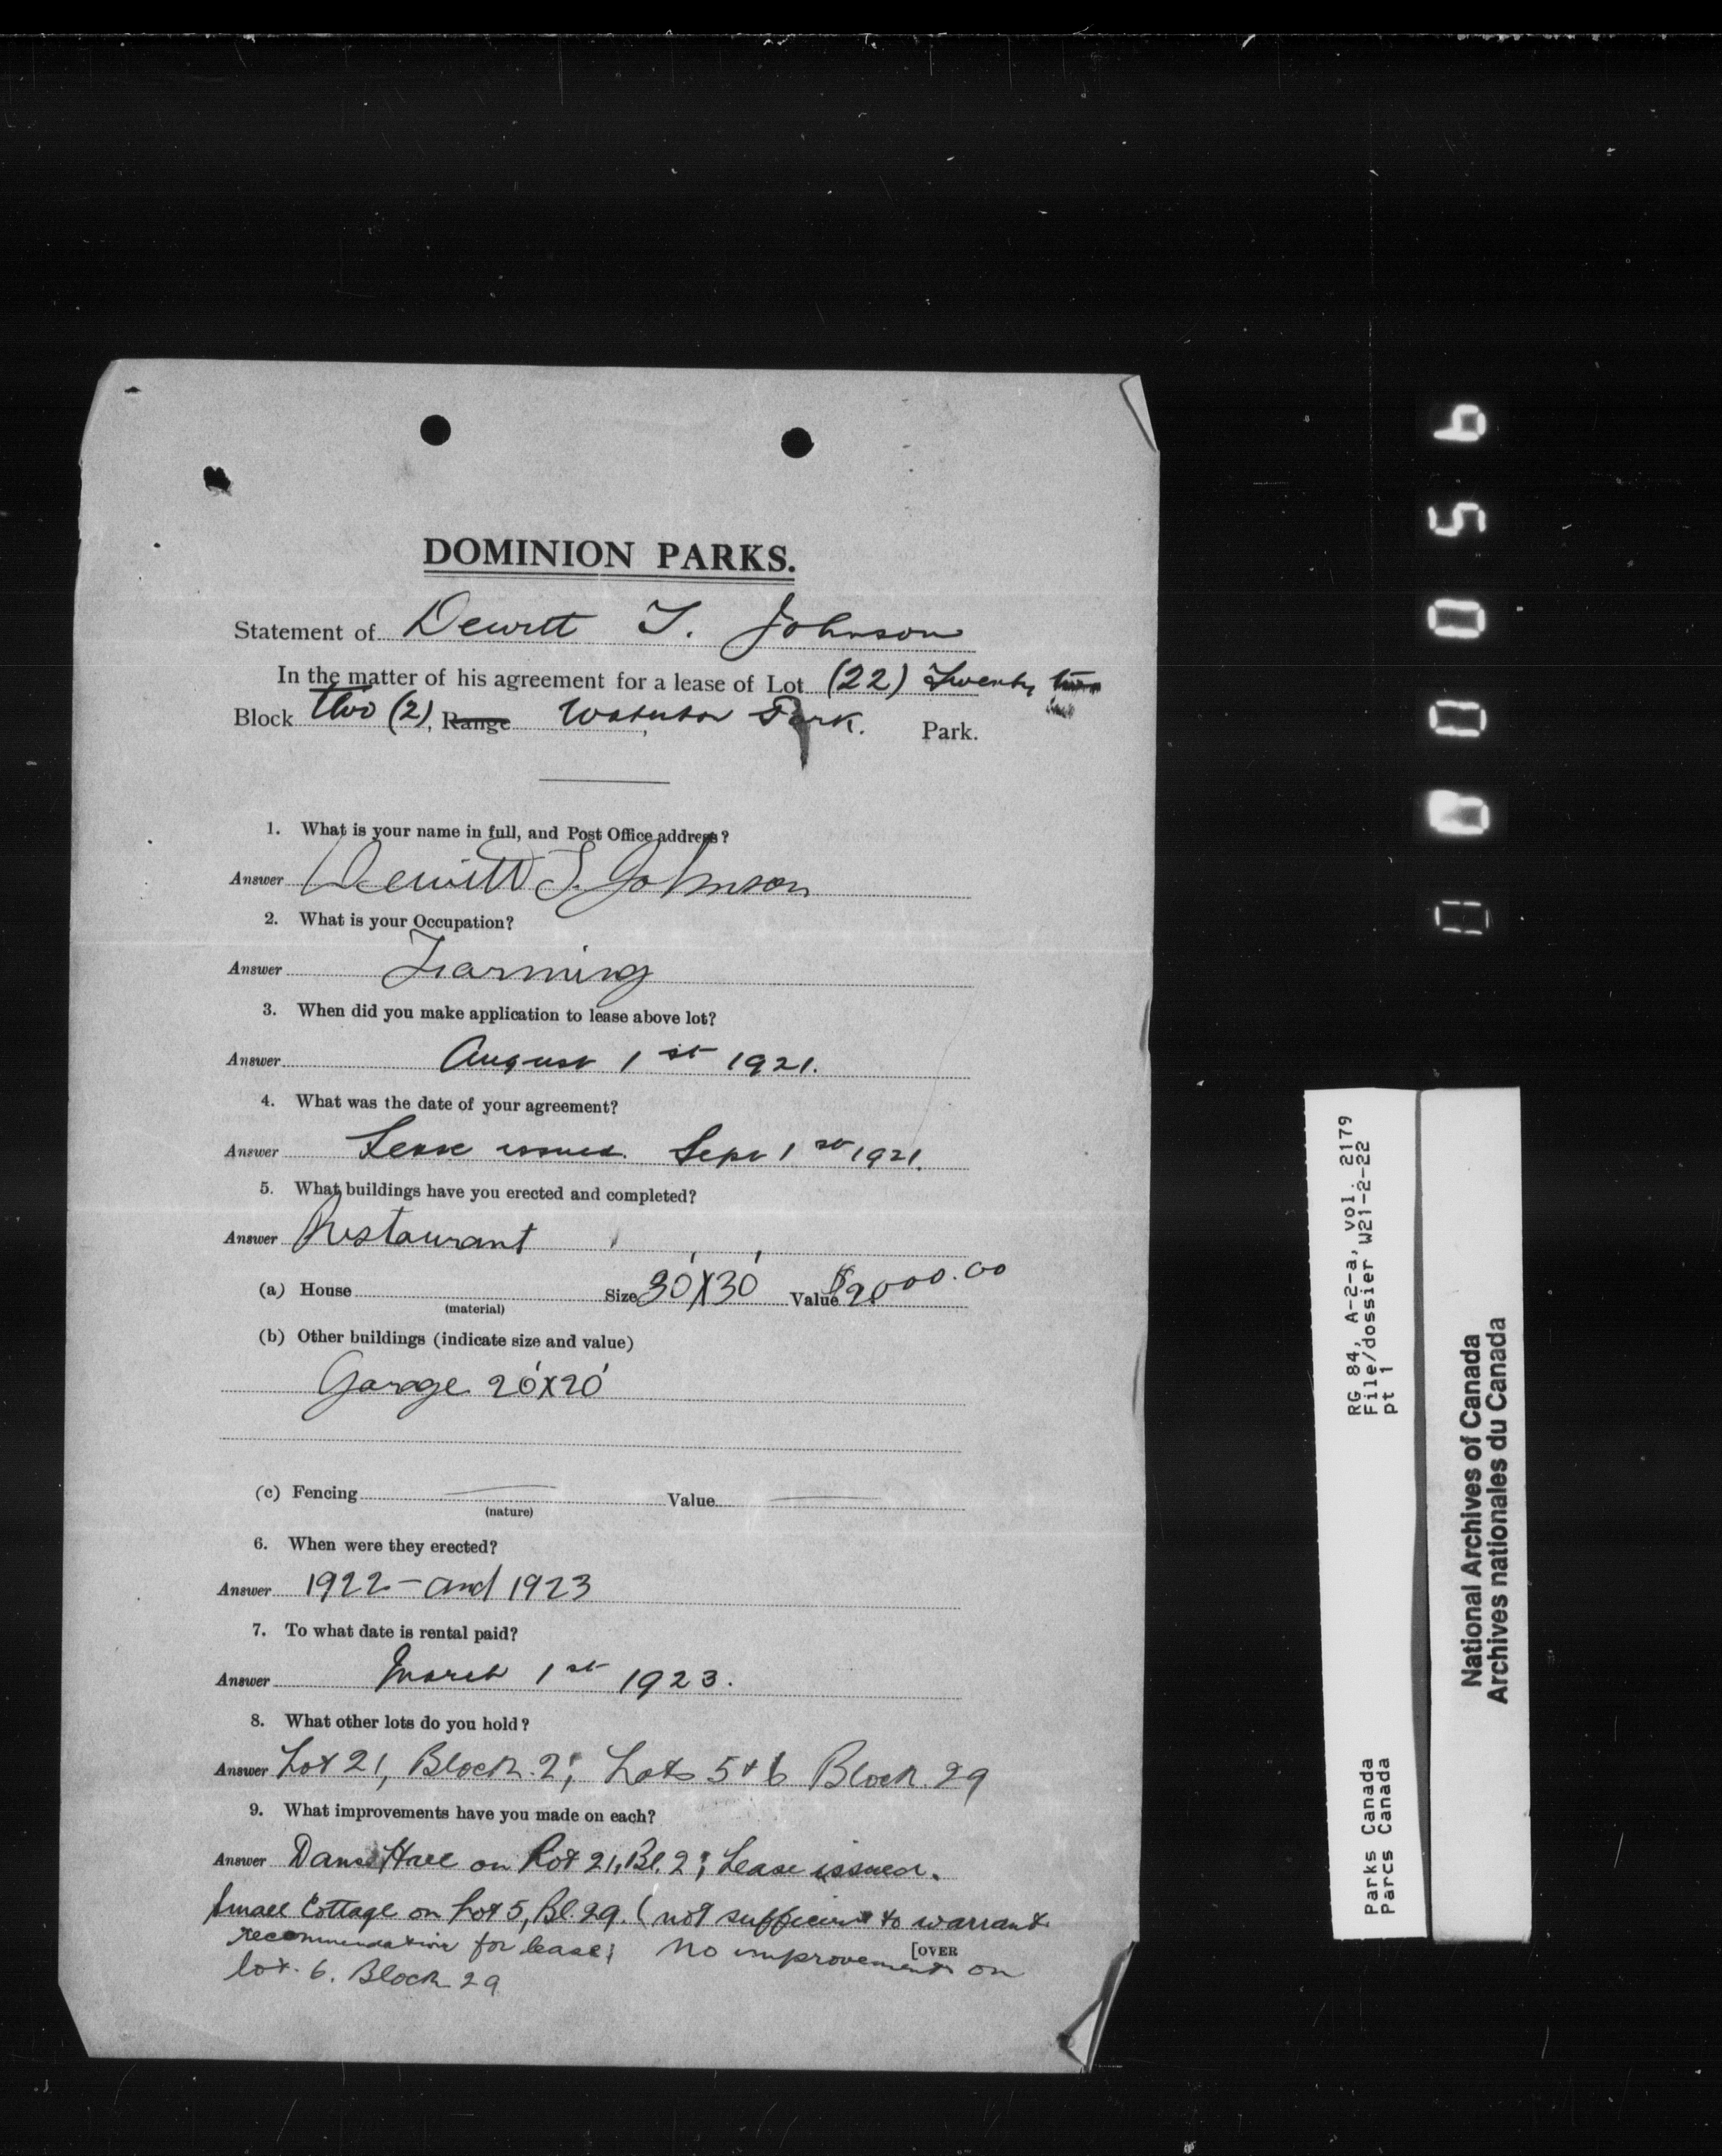 DOMINION PARKS.
Statement of Dewitt T. Johnson
In the matter of his agreement for a lease of Lot (22) Twenty two
Block two (2), Range Park. Park.
1. What is your name in full, and Post Office address?
Answer Dewitt T. Johnson
2. What is your Occupation?
Answer Farming
3. When did you make application to lease above lot?
Answer August 1st 1921.
4. What was the date of your agreement?
Answer Lease issued. Sept 1st 1921.
5. What buildings have you erected and completed?
Answer Restaurant
(a) House Size 30'X30' Value $2000.00
(material)
(b) Other buildings (indicate size and value)
Garage 20'X20'
(c) Fencing — Value —
(nature)
6. When were they erected?
Answer 1922 - and 1923
7. To what date is rental paid?
Answer March 1st 1923.
8. What other lots do you hold?
Answer Lot 21, Block 2; Lots 5 + 6 Block 29
9. What improvements have you made on each?
Answer Danse Hall on Lot 21, Bl. 2; Lease issued.
Small Cottage on Lot 5, Bl. 29. (not sufficient to warrant
recommendation for lease; No improvements on
[OVER
lot. 6. Block 29
0 0 0 5 6
RG 84, A-2-a, vol. 2179
File/dossier W21-2-22
pt 1
Parks Canada
Parcs Canada
National Archives of Canada
Archives nationales du Canada